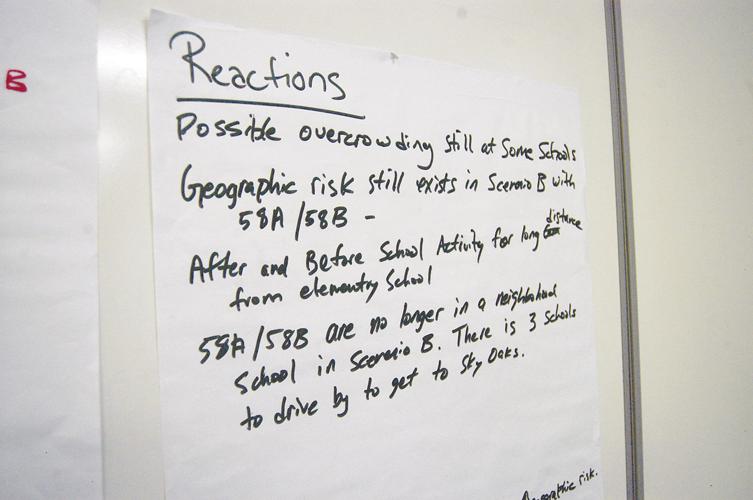 B
Reactions
Possible overcrowding still at Some Schools
Geographic risk still exists in Scenerio B with
58A/58B -
After and Before School Activity for long distance
from elementry School
58A/58B are no longer in a neighborhood
School in Scenerio B. There is 3 Schools
to drive by to get to Sky Oaks.
risk.